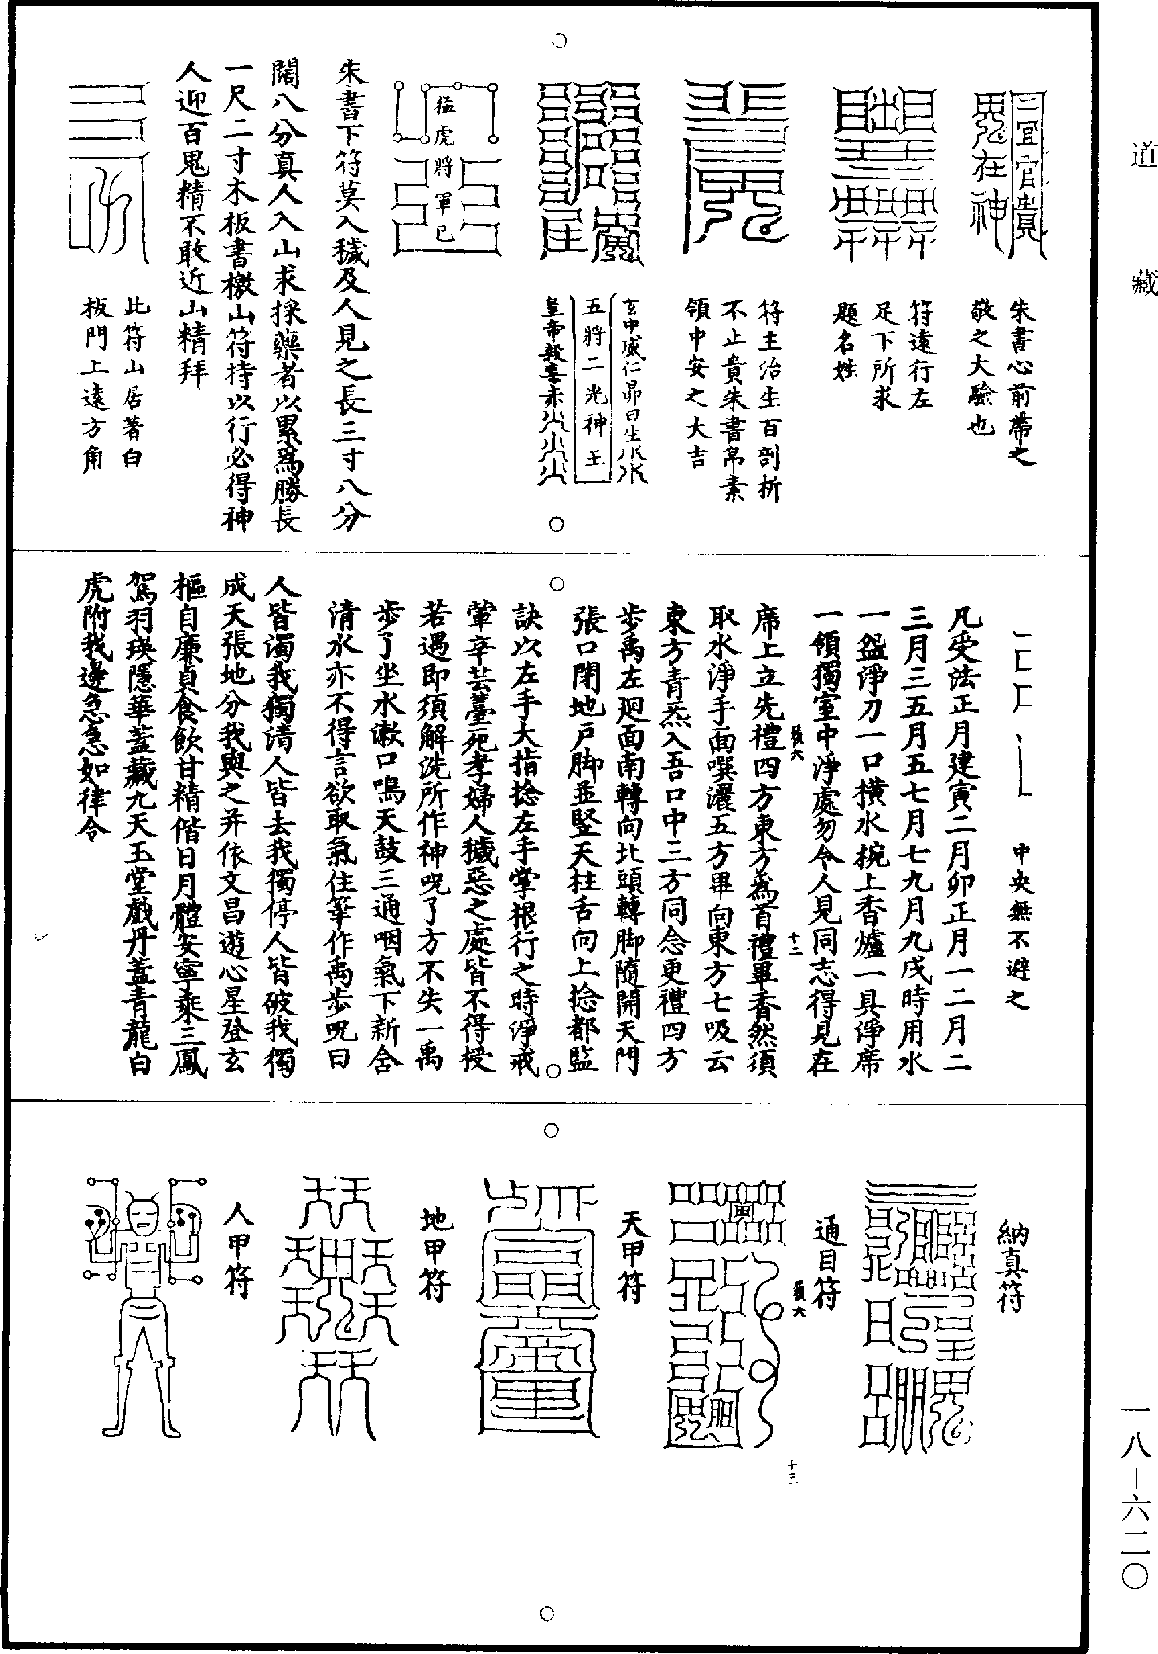 道藏
朱書心前帶之
敬之大驗也
符遠行左
足下所求
題名姓
符主治生百剖折
不止貴朱書帛素
領中安之大吉
五將二光神王
猛虎將軍己
朱書下符莫入穢及人見之長三寸八分
闊八分真人入山求採藥者以累為勝長
一尺二寸木板書檄山符持以行必得神
人迎百鬼精不敢近山精拜
此符山居著白
板門上遠方角
中央無不避之
凡受法正月建寅二月卯正月一二月二
三月三五月五七月七九月九戌時用水
一盌淨刀一口橫水椀上香爐一具淨席
一領獨室中淨處勿令人見同志得見在
席上立先禮四方東方為首禮畢香然須
十二
取水淨手面噀灑五方畢向東方七吸云
東方青炁入吾口中三方同念更禮四方
步禹左迴面南轉向北頭轉脚隨開天門
張口閉地戶脚並竪天柱舌向上捻都監
訣以左手大指捻左手掌根行之時淨戒
葷辛芸薹死孝婦人穢惡之處皆不得侵
若遇即須解洗所作神呪了方不失一禹
步了坐水漱口鳴天鼓三通咽氣下新舍
清水亦不得言欲取氣住筆作禹步呪曰
人皆濁我獨清人皆去我獨停人皆破我獨
成天張地分我與之并依文昌遊心星登玄
樞自廉貞食飲甘精偕日月體安寧乘三鳳
駕羽瑛隱華蓋藏九天玉堂戲丹蓋青龍白
虎附我邊急急如律令
納真符
通目符
十三
天甲符
地甲符
人甲符
一八—六二〇